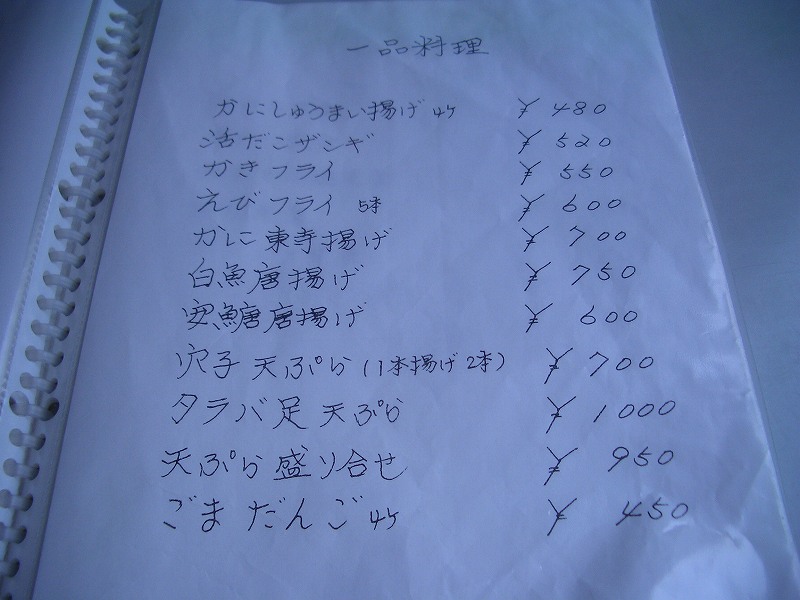 一品料理
かにしゅうまい揚げ 4ケ ¥480
活だこザンギ ¥520
かきフライ ¥550
えびフライ 5本 ¥600
かに東寺揚げ ¥700
白魚唐揚げ ¥750
唐揚げ ¥600
穴子天ぷら(1本揚げ2本) ¥700
タラバ足天ぷら ¥1000
天ぷら盛り合せ ¥950
ごまだんご 4ケ ¥450